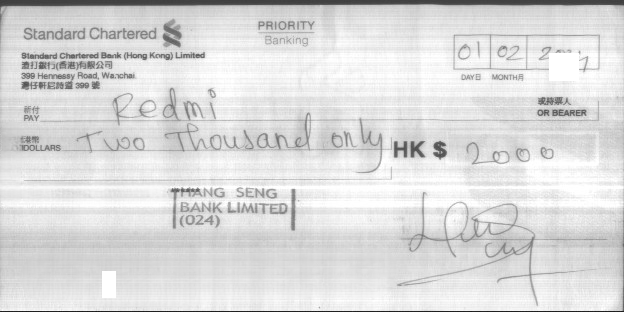 Standard Chartered
PRIORITY
Banking
Standard Chartered Bank (Hong Kong) Limited
渣打銀行(香港)有限公司
399 Hennessy Road, Wanchai
灣仔軒尼詩道 399 號
01 02
DAY日 MONTH月
祈付
PAY Redmi
或持票人
OR BEARER
港幣
DOLLARS Two Thousand only HK $ 2000
HANG SENG
BANK LIMITED
(024)